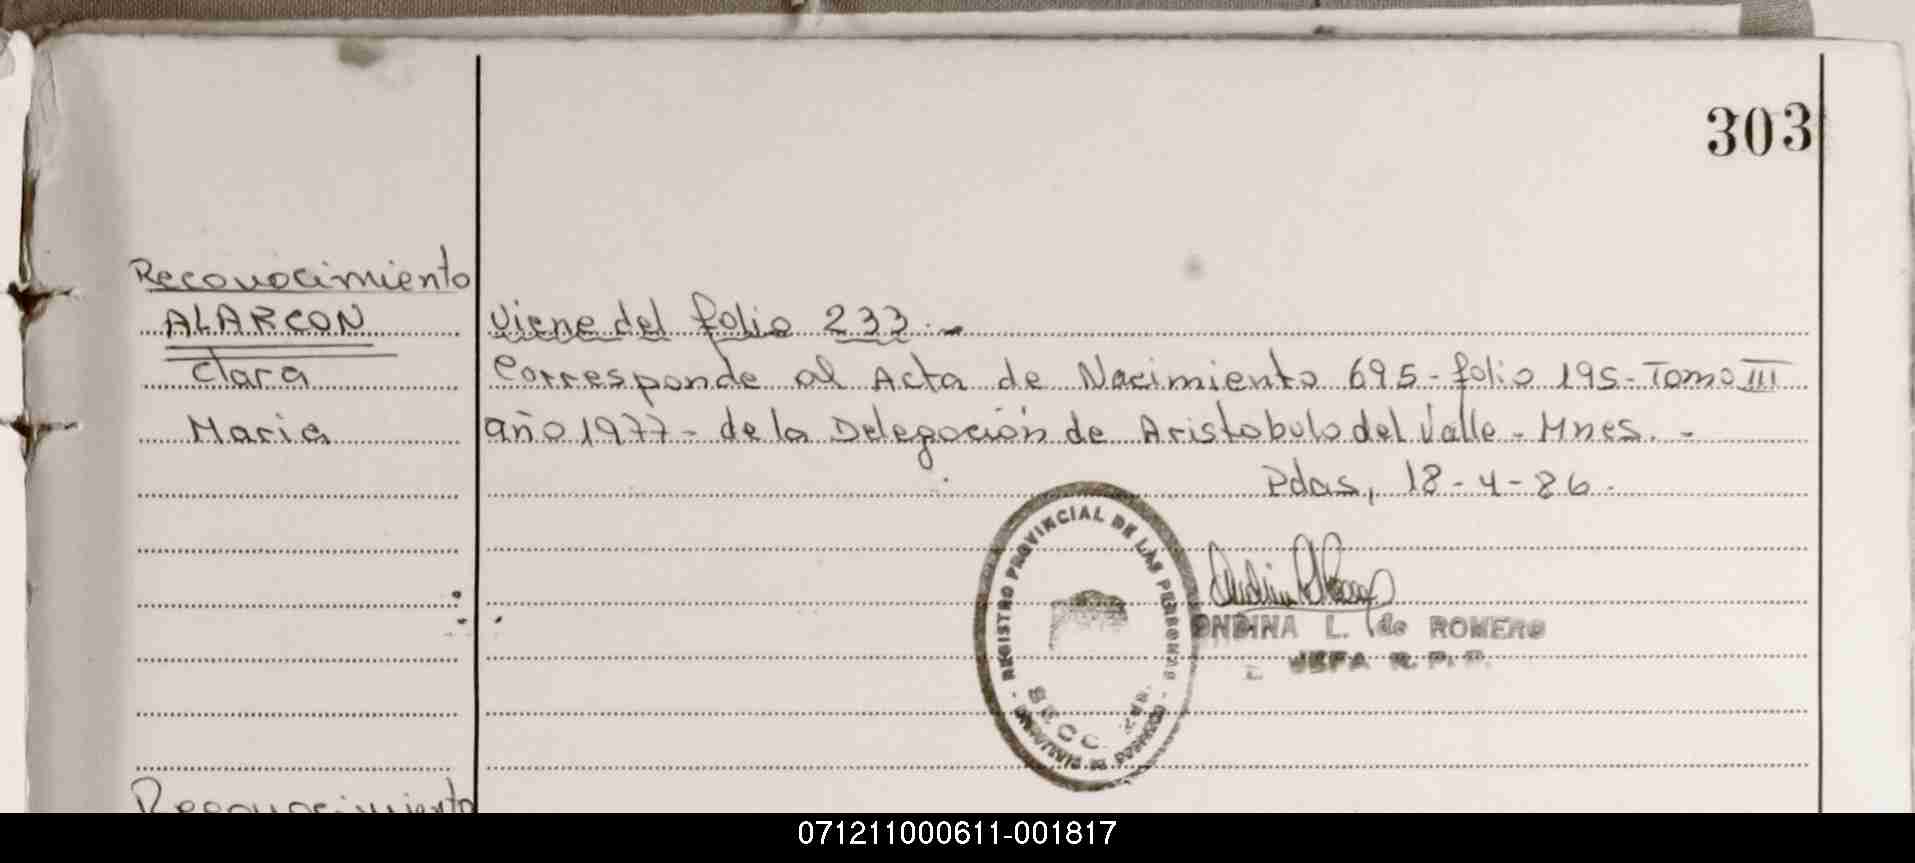 303
Reconocimiento
ALARCON
Clara
Maria
Viene del folio 233.-
Corresponde al Acta de Nacimiento 695-folio 195-Tomo III
año 1977- de la Delegación de Aristobulo del Valle - Mnes. -
Pdas, 18-4-86.
REGISTRO PROVINCIAL DE LAS PERSONAS
SECC.
ONDINA L. de ROMERO
JEFA R. P. P.
Reconocimiento
071211000611-001817